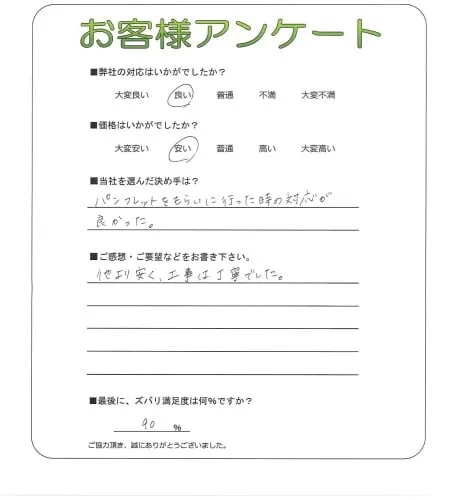 お客様アンケート
■弊社の対応はいかがでしたか？
大変良い 良い 普通 不満 大変不満
■価格はいかがでしたか？
大変安い 安い 普通 高い 大変高い
■当社を選んだ決め手は？
パンフレットをもらいに行った時の対応が
良かった。
■ご感想・ご要望などをお書き下さい。
他より安く、工事は丁寧でした。
■最後に、ズバリ満足度は何%ですか？
90 %
ご協力頂き、誠にありがとうございました。